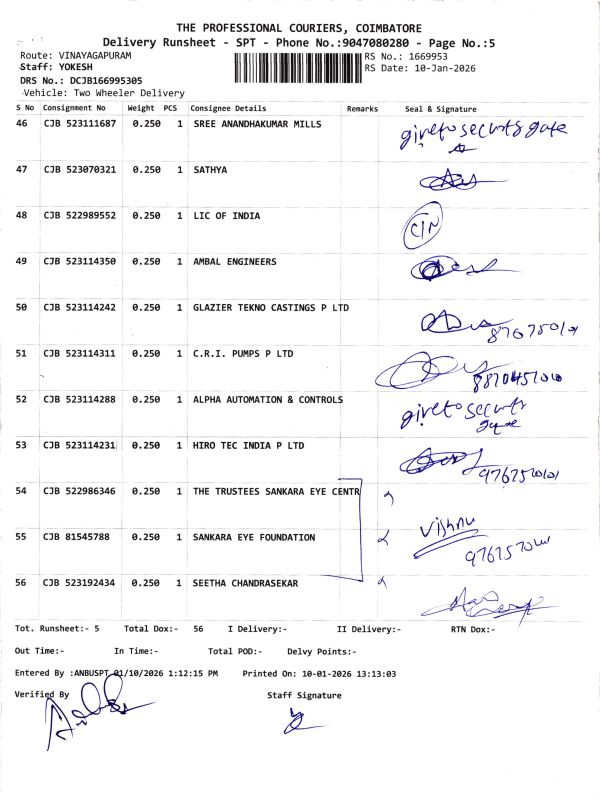 THE PROFESSIONAL COURIERS, COIMBATORE
Delivery Runsheet - SPT - Phone No.:9047080280 - Page No.:5
Route: VINAYAGAPURAM
RS No.: 1669953
Staff: YOKESH
RS Date: 10-Jan-2026
DRS No.: DCJB166995305
Vehicle: Two Wheeler Delivery
S No Consignment No Weight PCS Consignee Details Remarks Seal & Signature
46 CJB 523111687 0.250 1 SREE ANANDHAKUMAR MILLS
47 CJB 523070321 0.250 1 SATHYA
48 CJB 522989552 0.250 1 LIC OF INDIA
49 CJB 523114350 0.250 1 AMBAL ENGINEERS
50 CJB 523114242 0.250 1 GLAZIER TEKNO CASTINGS P LTD
51 CJB 523114311 0.250 1 C.R.I. PUMPS P LTD
52 CJB 523114288 0.250 1 ALPHA AUTOMATION & CONTROLS
53 CJB 523114231 0.250 1 HIRO TEC INDIA P LTD
54 CJB 522986346 0.250 1 THE TRUSTEES SANKARA EYE CENTR
55 CJB 81545788 0.250 1 SANKARA EYE FOUNDATION Vishnu
56 CJB 523192434 0.250 1 SEETHA CHANDRASEKAR
Tot. Runsheet:- 5 Total Dox:- 56 I Delivery:- II Delivery:- RTN Dox:-
Out Time:- In Time:- Total POD:- Delvy Points:-
Entered By :ANBUSPT 01/10/2026 1:12:15 PM Printed On: 10-01-2026 13:13:03
Verified By Staff Signature